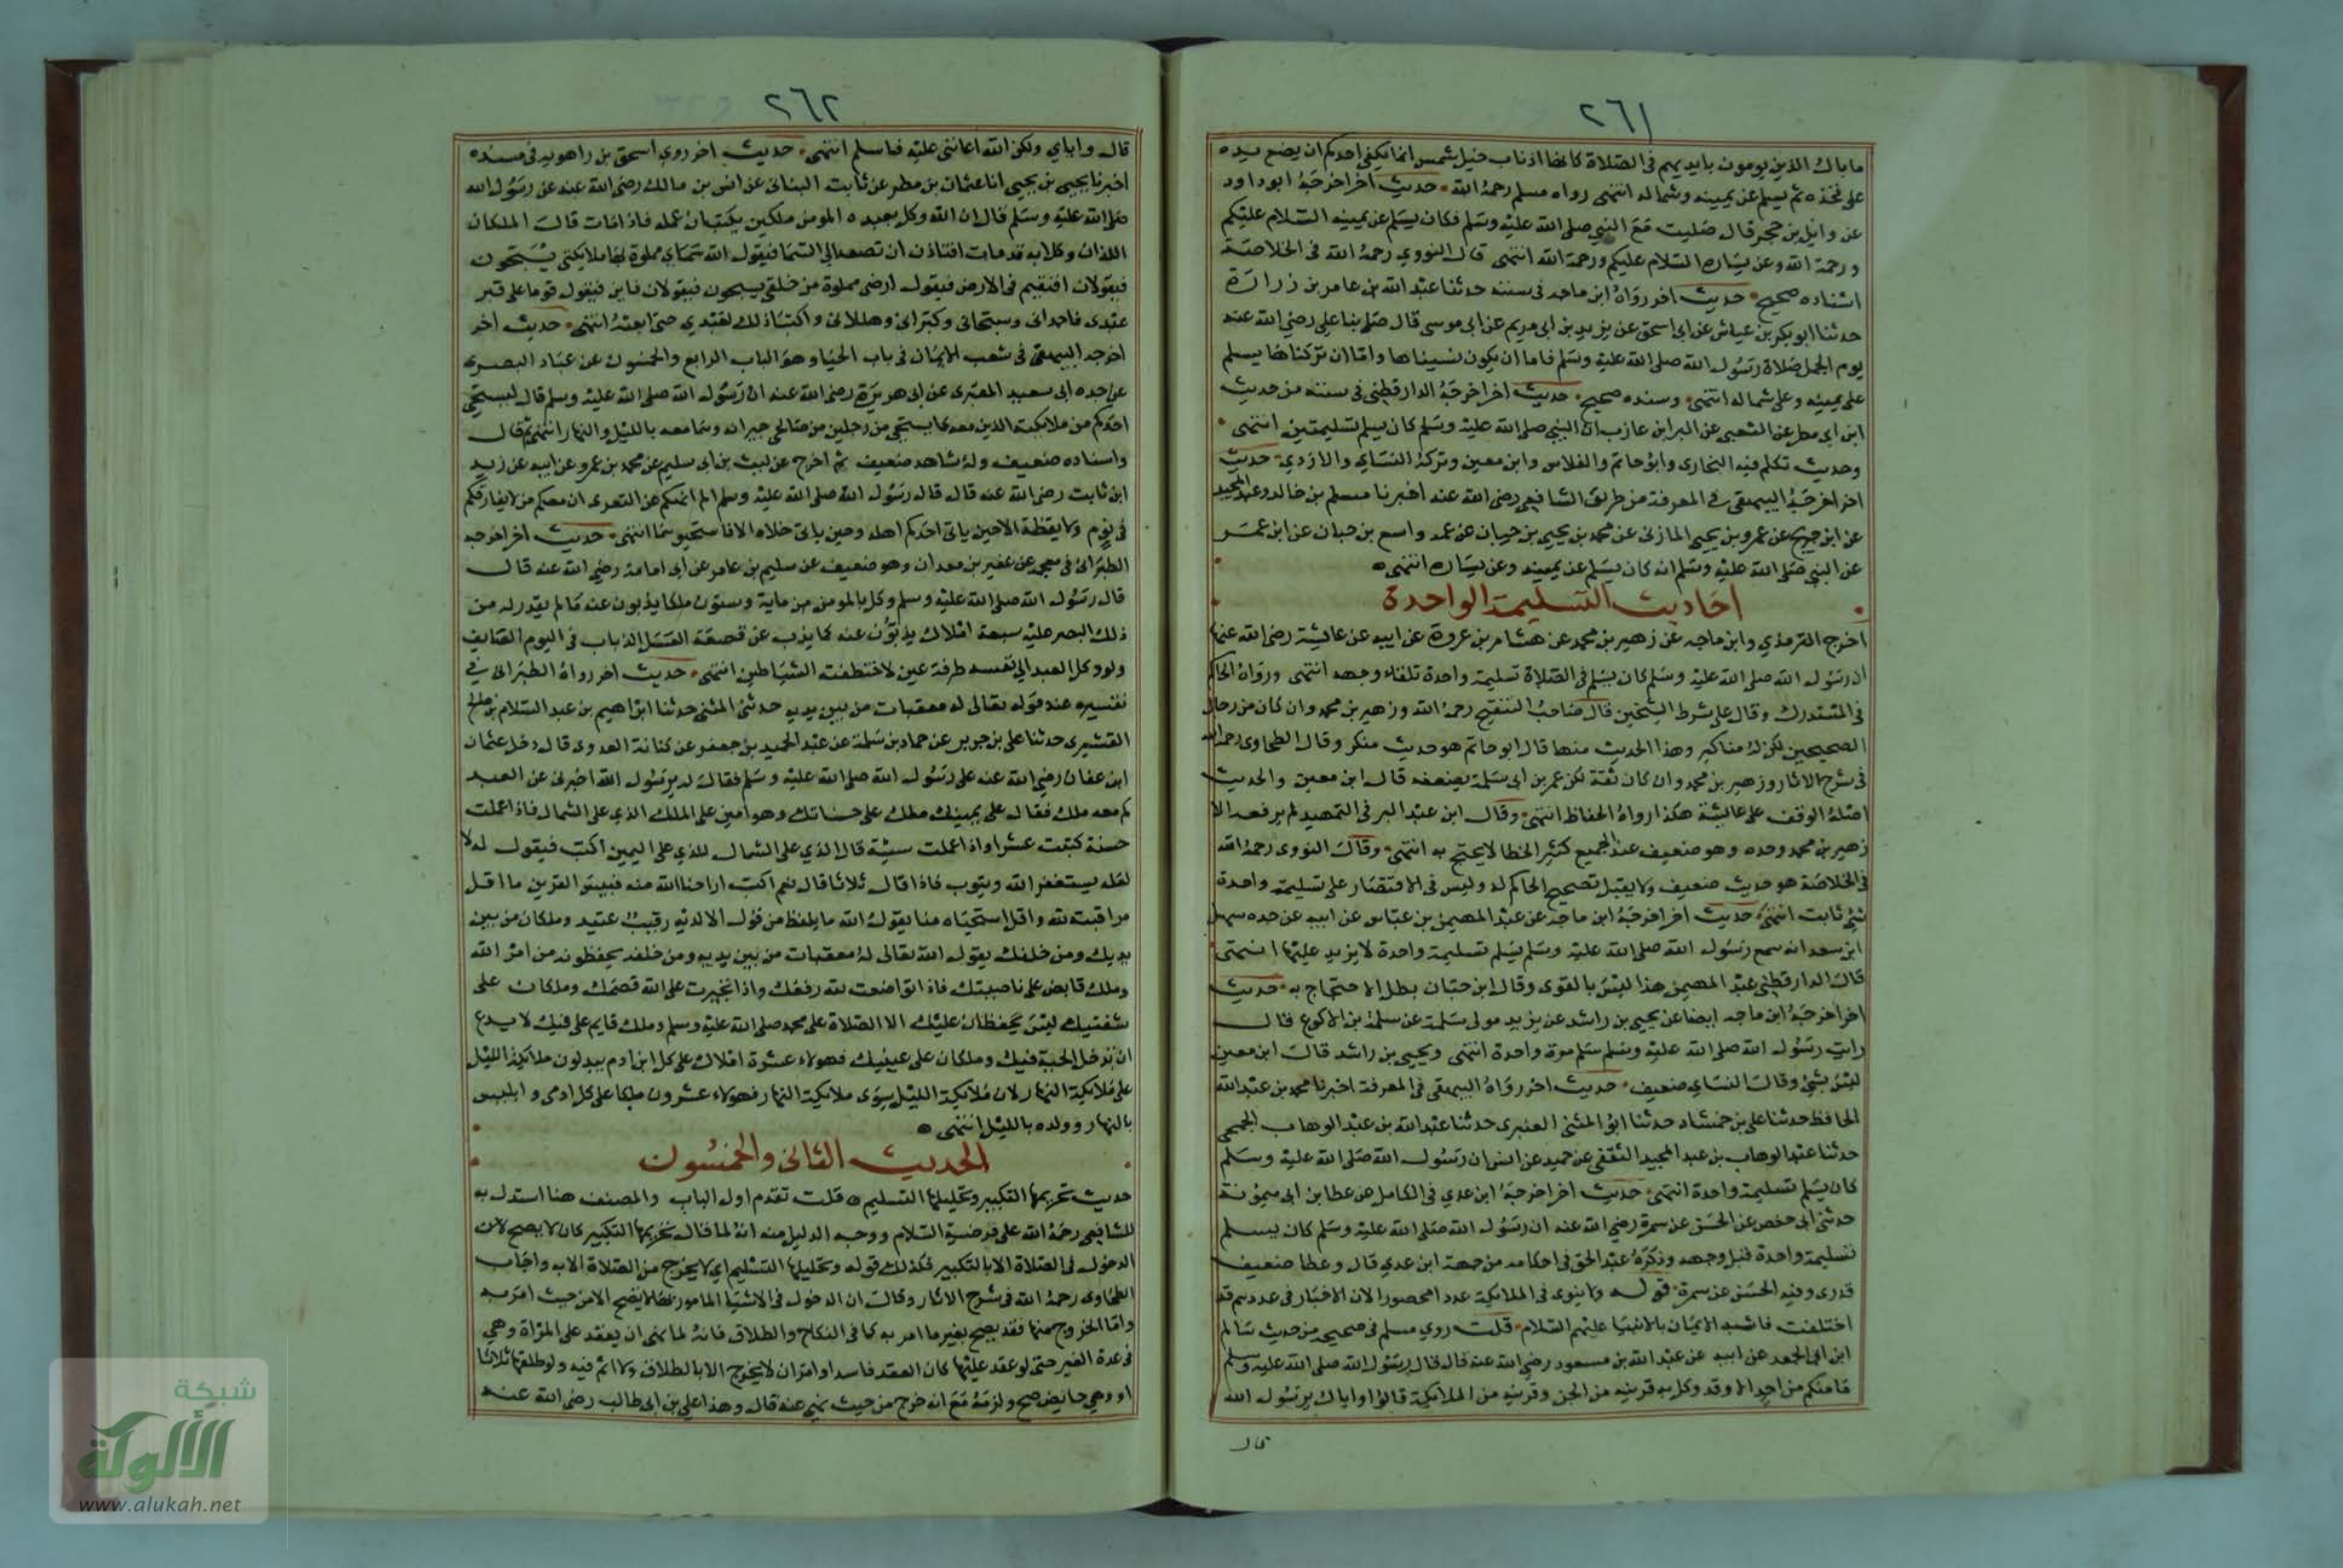 ٢٦١
ما بال الذين يومون بايديهم في الصلاة كانها اذناب خيل شمس انما يكفي احدكم ان يضع يده
على فخذه ثم يسلم عن يمينه وشماله انتهى رواه مسلم رحمه الله حديث اخر اخرجه ابو داود
عن وايل بن حجر قال صليت مع النبي صلى الله عليه وسلم فكان يسلم عن يمينه السلام عليكم
ورحمة الله وعن يساره السلام عليكم ورحمة الله انتهى قال النووي رحمه الله في الخلاصة
اسناده صحيح حديث اخر رواه ابن ماجه في سننه حدثنا عبد الله بن عامر بن زرارة
حدثنا ابو بكر بن عياش عن ابي اسحق عن يزيد بن ابي مريم عن ابي موسى قال صلى بنا علي رضي الله عنه
يوم الجمل صلاة رسول الله صلى الله عليه وسلم فاما ان يكون نسيناها واما ان تركناها يسلم
على يمينه وعلى شماله انتهى وسنده صحيح حديث اخر اخرجه الدارقطني في سننه من حديث
ابن ابي مطر عن الشعبي عن البرا بن عازب ان النبي صلى الله عليه وسلم كان يسلم تسليمتين انتهى
وحديث تكلم فيه البخاري وابو حاتم والفلاس وابن معين وتركه النساي والازدي حديث
اخر اخرجه البيهقي في المعرفة من طريق الشافعي رضي الله عنه اخبرنا مسلم بن خالد وعبد المجيد
عن ابن جريج عن عمرو بن يحيى المازني عن محمد بن يحيى بن حبان عن عمه واسع بن حبان عن ابن عمر
عن النبي صلى الله عليه وسلم انه كان يسلم عن يمينه وعن يساره انتهى
احاديث التسليمة الواحدة
اخرج الترمذي وابن ماجه عن زهير بن محمد عن هشام بن عروة عن ابيه عن عايشة رضي الله عنها
ان رسول الله صلى الله عليه وسلم كان يسلم في الصلاة تسليمة واحدة تلقاء وجهه انتهى ورواه الحاكم
في المستدرك وقال على شرط الشيخين قال صاحب التنقيح رحمه الله وزهير بن محمد وان كان من رجال
الصحيحين لكن له مناكير وهذا الحديث منها قال ابو حاتم هو حديث منكر وقال الطحاوي رحمه الله
في شرح الاثار وزهير بن محمد وان كان ثقة لكن عمر بن ابي سلمة يضعفه قال ابن معين والحديث
اصله الوقف على عايشة هكذا رواه الحفاظ انتهى وقال ابن عبد البر في التمهيد لم يرفعه الا
زهير بن محمد وحده وهو ضعيف عند الجميع كثير الخطا لا يحتج به انتهى وقال النووي رحمه الله
في الخلاصة هو حديث ضعيف ولا يقبل تصحيح الحاكم له وليس في الاقتصار على تسليمة واحدة
شي ثابت انتهى حديث اخر اخرجه ابن ماجه عن عبد المهيمن بن عباس عن ابيه عن جده سهل
ابن سعد انه سمع رسول الله صلى الله عليه وسلم يسلم تسليمة واحدة لا يزيد عليها انتهى
قال الدارقطني عبد المهيمن هذا ليس بالقوي وقال ابن حبان بطل الاحتجاج به حديث
اخر اخرجه ابن ماجه ايضا عن يحيى بن راشد عن يزيد مولى سلمة عن سلمة بن الاكوع قال
رايت رسول الله صلى الله عليه وسلم سلم مرة واحدة انتهى ويحيى بن راشد قال ابن معين
ليس بشي وقال النساي ضعيف حديث اخر رواه البيهقي في المعرفة اخبرنا محمد بن عبد الله
الحافظ حدثنا علي بن حمشاد حدثنا ابو المثنى العنبري حدثنا عبد الله بن عبد الوهاب الجمحي
حدثنا عبد الوهاب بن عبد المجيد الثقفي عن حميد عن انس ان رسول الله صلى الله عليه وسلم
كان يسلم تسليمة واحدة انتهى حديث اخر اخرجه ابن عدي في الكامل عن عطا بن ابي ميمونة
حدثني ابي حفص عن الحسن عن سمرة رضي الله عنه ان رسول الله صلى الله عليه وسلم كان يسلم
تسليمة واحدة قبل وجهه وذكره عبد الحق في احكامه من جهة ابن عدي قال وعطا ضعيف
قدري وفيه الحسن عن سمرة قوله ولا ينوي في الملايكة عددا محصورا لان الاخبار في عددهم قد
اختلفت فاشبه الايمان بالانبيا عليهم السلام قلت روي مسلم في صحيحه من حديث سالم
ابن ابي الجعد عن ابيه عن عبد الله بن مسعود رضي الله عنه قال قال رسول الله صلى الله عليه وسلم
ما منكم من احد الا وقد وكل به قرينه من الجن وقرينه من الملايكة قالوا واياك يرسول الله
قال
٢٦٢
قال واياي ولكن الله اعانني عليه فاسلم انتهى حديث اخر روي اسحق بن راهويه في مسنده
اخبرنا يحيى بن يحيى انا عثمان بن مطر عن ثابت البناني عن انس بن مالك رضي الله عنه عن رسول الله
صلى الله عليه وسلم قال ان الله وكل بعبده المومن ملكين يكتبان عمله فاذا مات قال الملكان
اللذان وكلا به قد مات افتاذن ان نصعد الى السما فيقول الله سماي مملوة بها ملايكتي يسبحون
فيقولان افنقيم في الارض فيقول ارضي مملوة من خلقي يسبحون فيقولان فاين فيقول قوما على قبر
عبدي فاحمداني وسبحاني وكبراني وهللاني واكتبا ذلك لعبدي حتى ابعثه انتهى حديث اخر
اخرجه البيهقي في شعب الايمان في باب الحيا وهو الباب الرابع والخمسون عن عباد البصري
عن جده ابي سعيد المقبري عن ابي هريرة رضي الله عنه ان رسول الله صلى الله عليه وسلم قال ليستحي
احدكم من ملايكته الذين معه كما يستحي من رجلين من صالحي جيرانه وهما معه بالليل والنهار انتهى ثم قال
واسناده ضعيف وله شاهد ضعيف ثم اخرج عن ليث بن ابي سليم عن محمد بن عمرو عن ابيه عن زيد
ابن ثابت رضي الله عنه قال قال رسول الله صلى الله عليه وسلم الم انهكم عن التعري ان معكم من لا يفارقكم
في نوم ولا يقظة الا حين ياتي احدكم اهله وحين ياتي خلاه الا فاستحيوهما انتهى حديث اخر اخرجه
الطبراني في معجمه عن عفير بن معدان وهو ضعيف عن سليم بن عامر عن ابي امامة رضي الله عنه قال
قال رسول الله صلى الله عليه وسلم وكل بالمومن من ماية وستون ملكا يذبون عنه ما لم يقدر له من
ذلك البصر عليه سبعة املاك يذبون عنه كما يذب عن قصعة العسل الذباب في اليوم الصايف
ولو وكل العبد الى نفسه طرفة عين لاختطفته الشياطين انتهى حديث اخر رواه الطبراني في
تفسيره عند قوله تعالى له معقبات من بين يديه حدثني المثنى حدثنا ابراهيم بن عبد السلام بن صالح
القشيري حدثنا علي بن جرير عن حماد بن سلمة عن عبد الحميد بن جعفر عن كنانة العدوي قال دخل عثمان
ابن عفان رضي الله عنه على رسول الله صلى الله عليه وسلم فقال له يرسول الله اخبرني عن العبد
كم معه ملك فقال على يمينك ملك على حسناتك وهو امين على الملك الذي على الشمال فاذا عملت
حسنة كتبت عشرا واذا عملت سيئة قال الذي على الشمال للذي على اليمين اكتب فيقول له لا
لعله يستغفر الله ويتوب فاذا قال ثلاثا قال نعم اكتب اراحنا الله منه فبيس القرين ما اقل
مراقبته لله واقل استحياه منا يقول الله ما يلفظ من قول الا لديه رقيب عتيد وملكان من بين
يديك ومن خلفك يقول الله تعالى له معقبات من بين يديه ومن خلفه يحفظونه من امر الله
وملك قابض على ناصيتك فاذا تواضعت لله رفعك واذا تجبرت على الله قصمك وملكان على
شفتيك ليس يحفظان عليك الا الصلاة على محمد صلى الله عليه وسلم وملك قايم على فيك لا يدع
ان تدخل الحية فيك وملكان على عينيك فهولاء عشرة املاك على كل ابن ادم يبدلون ملايكة الليل
على ملايكة النهار لان ملايكة الليل سوى ملايكة النهار فهولاء عشرون ملكا على كل ادمي وابليس
بالنهار وولده بالليل انتهى
الحديث الثاني والخمسون
حديث تحريمها التكبير وتحليلها التسليم قلت تقدم اول الباب والمصنف هنا استدل به
للشافعي رحمه الله على فرضية السلام ووجه الدليل منه انه لما قال تحريمها التكبير كان لا يصح لاحد
الدخول في الصلاة الا بالتكبير فكذلك قوله وتحليلها التسليم اي لا يخرج من الصلاة الا به واجاب
الطحاوي رحمه الله في شرح الاثار وقال ان الدخول في الاشيا المامور بها لا يصح الا من حيث امر به
واما الخروج منها فقد يصح بغير ما امر به كما في النكاح والطلاق فانه لما نهى ان يعقد على المراة وهي
في عدة الغير حتى لو عقد عليها كان العقد فاسدا وامر ان لا يخرج الا بالطلاق ولا اثم فيه ولو طلقها ثلاثا
او وهي حايض صح ولزمه مع انه خرج من حيث نهي عنه قال وهذا علي بن ابي طالب رضي الله عنه
شبكة
الألوكة
www.alukah.net